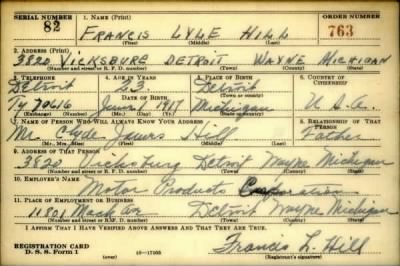 SERIAL NUMBER 1. NAME (Print) ORDER NUMBER
82 FRANCIS LYLE HILL 763
(First) (Middle) (Last)
2. ADDRESS (Print)
3820 VICKSBURG DETROIT WAYNE MICHIGAN
(Number and street or R. F. D. number) (Town) (County) (State)
3. TELEPHONE 4. AGE IN YEARS 5. PLACE OF BIRTH 6. COUNTRY OF CITIZENSHIP
Detroit 23 Detroit
(Exchange) DATE OF BIRTH (Town or county)
Ty 70616 June 1917 Michigan U.S.A.
(Number) (Mo.) (Day) (Yr.) (State or country)
7. NAME OF PERSON WHO WILL ALWAYS KNOW YOUR ADDRESS 8. RELATIONSHIP OF THAT PERSON
Mr. Clyde Hill Father
(Mr., Mrs., Miss) (First) (Middle) (Last)
9. ADDRESS OF THAT PERSON
3820 Vicksburg Detroit Wayne Michigan
(Number and street or R. F. D. number) (Town) (County) (State)
10. EMPLOYER'S NAME
Motor Products Corporation
11. PLACE OF EMPLOYMENT OR BUSINESS
11801 Mack Av Detroit Wayne Michigan
(Number and street or R. F. D. number) (Town) (County) (State)
I AFFIRM THAT I HAVE VERIFIED ABOVE ANSWERS AND THAT THEY ARE TRUE.
REGISTRATION CARD
D. S. S. Form 1 (over) 16—17105 Francis L. Hill
(Registrant's signature)